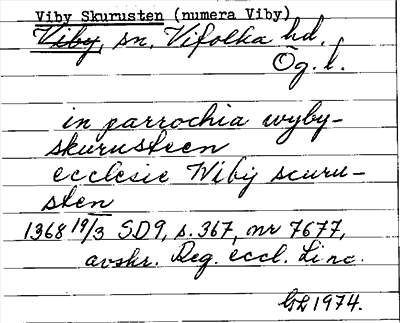 Viby Skurusten (numera Viby)
Viby, sn, Vifolka hd,
Ög. l.
in parrochia wyby-
skurusteen
ecclesie Wiby scuru-
sten
1368 19/3 SD9, s. 367, nr 7677,
avskr. Reg. eccl. Linc.
GL 1974.